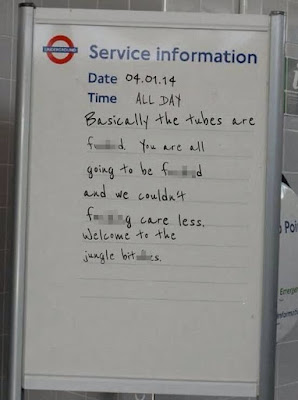 UNDERGROUND
Service information
Date 04.01.14
Time ALL DAY
Basically the tubes are
f d. You are all
going to be f d
and we couldn't
f g care less.
Welcome to the
jungle bit es.
Poi
Emergen
Informati